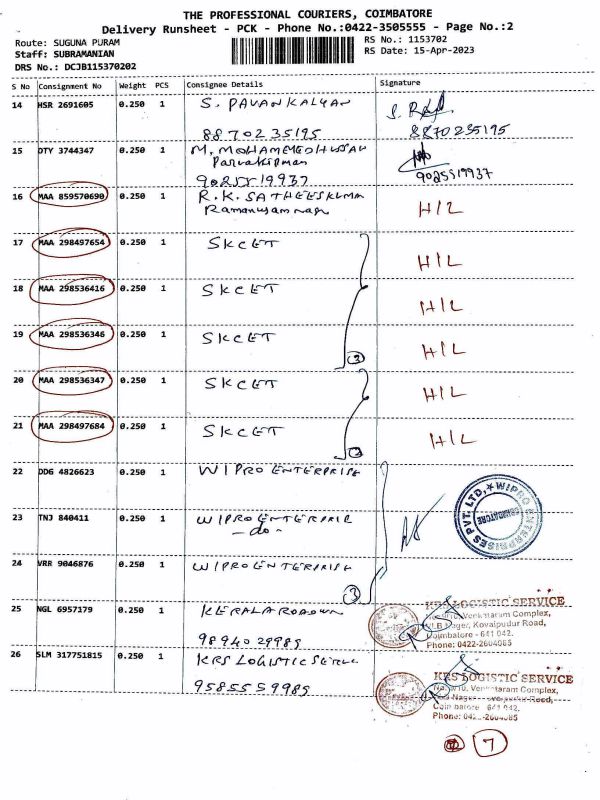 THE PROFESSIONAL COURIERS, COIMBATORE
Delivery Runsheet - PCK - Phone No.:0422-3505555 - Page No.:2
Route: SUGUNA PURAM RS No.: 1153702
Staff: SUBRAMANIAN RS Date: 15-Apr-2023
DRS No.: DCJB115370202
S No Consignment No Weight PCS Consignee Details Signature
14 HSR 2691605 0.250 1 S. PAVAN KALYAN
8870235195 8870235195
15 DTY 3744347 0.250 1 M. MOHAMMED
9025519937 9025519937
16 MAA 859570690 0.250 1 R. K. SATHEESKUMA H/L
Ramanujam nagar
17 MAA 298497654 0.250 1 SKCET H/L
18 MAA 298536416 0.250 1 SKCET H/L
19 MAA 298536346 0.250 1 SKCET H/L
3
20 MAA 298536347 0.250 1 SKCET H/L
21 MAA 298497684 0.250 1 SKCET H/L
22 DDG 4826623 0.250 1 WIPRO ENTERPRISE
WIPRO ENTERPRISES PVT. LTD, COIMBATORE
23 TNJ 840411 0.250 1 WIPRO ENTERPRIE
-do-
24 VRR 9046876 0.250 1 WIPRO ENTERPRISE
3
25 NGL 6957179 0.250 1 KERALA ROADWN
KRS LOGISTIC SERVICE
No. 9/10, Venkataram Complex,
Nager, Kovaipudur Road,
Coimbatore - 641 042.
Phone: 0422-2604085
26 SLM 317751815 0.250 1 KRS LOGISTIC
9585559985
KRS LOGISTIC SERVICE
No. 9/10, Venkataram Complex,
Road,
Coimbatore 641 042.
Phone: 0422-2604085
7